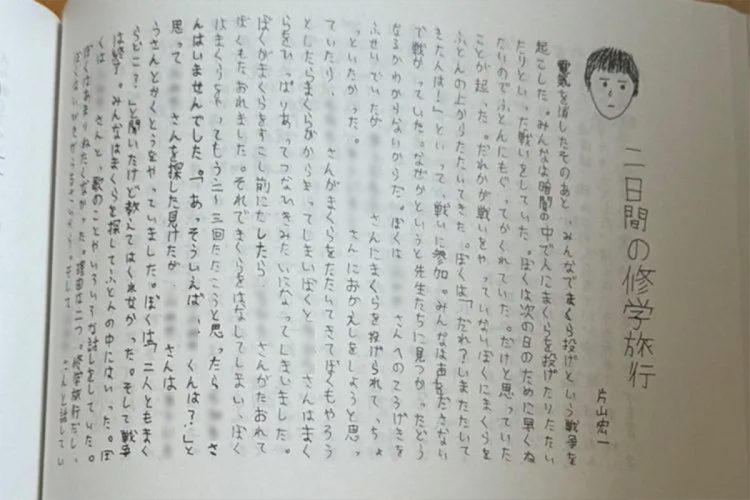 二日間の修学旅行
片山宏一
電気を消したそのあと、みんなでまくら投げという戦争を
起こした。みんなは暗闇の中で人にまくらを投げたりたたい
たりといった戦いをしていた。ぼくは次の日のために早くね
たいのでふとんにもぐってかくれていた。だけと思っていた
ことが起った。だれかが戦いをやっていないぼくにまくらを
ふとんの上からたたいてきた。ぼくは「だれ?いまたたいて
きた人は!」といって、戦いに参加。みんなは声をださない
で戦かっていた。なぜかというと先生たちに見つかったどう
なるかわからないからだ。ぼくは さんへのこうげきを
ふせいでいたが さんにまくらを投げられて、ちょ
っといたかった。 さんにおかえしをしようと思っ
ていたり、 さんがまくらをたたいてきてぼくもやろう
としたらまくらがからまってしまいぼくと さんはまく
らをひっぱりあってつなひきみたいになってしまいました。
ぼくがまくらをすこし前にだしたら さんがたおれて
ぼくもたおれました。それでまくらをはなしてしまい、ぼく
はまくらをやってもう二〜三回たたこうと思ったら さ
んはいませんでした。「あっそういえば、 くんは?」と
思って さんを探した見けたが、 さんは
うさんとかくとうをやっていました。ぼくは「二人ともまく
らどこ?」と聞いたけど教えてはくれなかった。そして戦争
は終了。みんなはまくらを探してふとんの中にはいった。ぼ
くは さんと、歌のことやいろいろな話しをしていた。
ぼくはあまりねたくなかった。理由は二つ。修学旅行だし、
さんと話してい